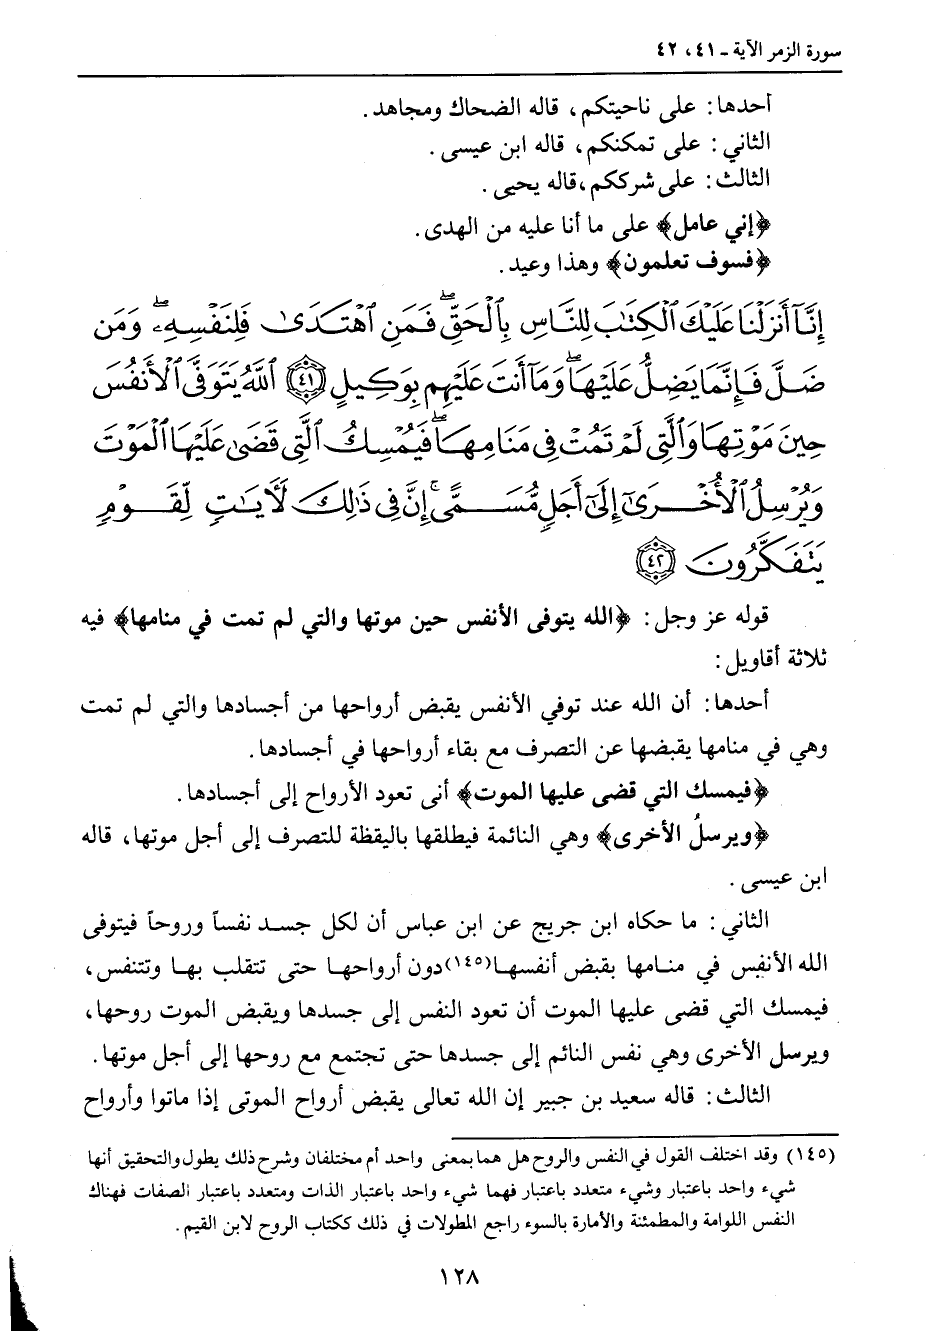 سورة الزمر الآية ـ ٤١، ٤٢
أحدها: على ناحيتكم، قاله الضحاك ومجاهد.
الثاني: على تمكنكم، قاله ابن عيسى.
الثالث: على شرككم،قاله يحيى.
﴿إني عامل﴾ على ما أنا عليه من الهدى.
﴿فسوف تعلمون﴾ وهذا وعيد.
إِنَّآ أَنزَلۡنَا عَلَيۡكَ ٱلۡكِتَٰبَ لِلنَّاسِ بِٱلۡحَقِّۖ فَمَنِ ٱهۡتَدَىٰ فَلِنَفۡسِهِۦۖ وَمَن
ضَلَّ فَإِنَّمَا يَضِلُّ عَلَيۡهَاۖ وَمَآ أَنتَ عَلَيۡهِم بِوَكِيلٍ ﴿٤١﴾ ٱللَّهُ يَتَوَفَّى ٱلۡأَنفُسَ
حِينَ مَوۡتِهَا وَٱلَّتِي لَمۡ تَمُتۡ فِي مَنَامِهَاۖ فَيُمۡسِكُ ٱلَّتِي قَضَىٰ عَلَيۡهَا ٱلۡمَوۡتَ
وَيُرۡسِلُ ٱلۡأُخۡرَىٰٓ إِلَىٰٓ أَجَلٖ مُّسَمًّىۚ إِنَّ فِي ذَٰلِكَ لَأٓيَٰتٖ لِّقَوۡمٖ
يَتَفَكَّرُونَ ﴿٤٢﴾
قوله عز وجل: ﴿الله يتوفى الأنفس حين موتها والتي لم تمت في منامها﴾ فيه
ثلاثة أقاويل:
أحدها: أن الله عند توفي الأنفس يقبض أرواحها من أجسادها والتي لم تمت
وهي في منامها يقبضها عن التصرف مع بقاء أرواحها في أجسادها.
﴿فيمسك التي قضى عليها الموت﴾ أنى تعود الأرواح إلى أجسادها.
﴿ويرسلُ الأخرى﴾ وهي النائمة فيطلقها باليقظة للتصرف إلى أجل موتها، قاله
ابن عيسى.
الثاني: ما حكاه ابن جريج عن ابن عباس أن لكل جسد نفساً وروحاً فيتوفى
الله الأنفس في منامها بقبض أنفسها(١٤٥)دون أرواحها حتى تتقلب بها وتتنفس،
فيمسك التي قضى عليها الموت أن تعود النفس إلى جسدها ويقبض الموت روحها،
ويرسل الأخرى وهي نفس النائم إلى جسدها حتى تجتمع مع روحها إلى أجل موتها.
الثالث: قاله سعيد بن جبير إن الله تعالى يقبض أرواح الموتى إذا ماتوا وأرواح
(١٤٥) وقد اختلف القول في النفس والروح هل هما بمعنى واحد أم مختلفان وشرح ذلك يطول والتحقيق أنها
شيء واحد باعتبار وشيء متعدد باعتبار فهما شيء واحد باعتبار الذات ومتعدد باعتبار الصفات فهناك
النفس اللوامة والمطمئنة والأمارة بالسوء راجع المطولات في ذلك ككتاب الروح لابن القيم.
١٢٨